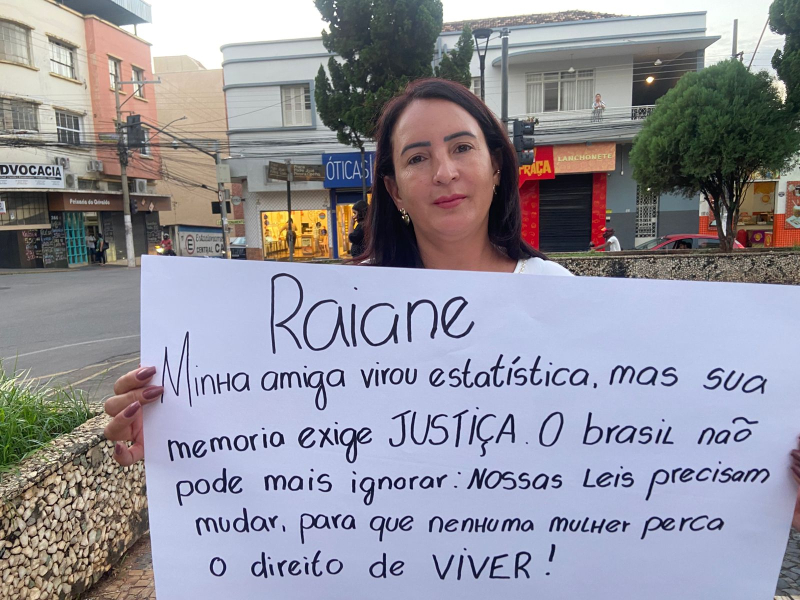 DVOCACIA
ÓTICAS
PRAÇA
LANCHONETE
Estacionamento
CENTRAL
Raiane
Minha amiga virou estatística, mas sua
memoria exige JUSTIÇA. O brasil não
pode mais ignorar: Nossas Leis precisam
mudar, para que nenhuma mulher perca
o direito de VIVER!